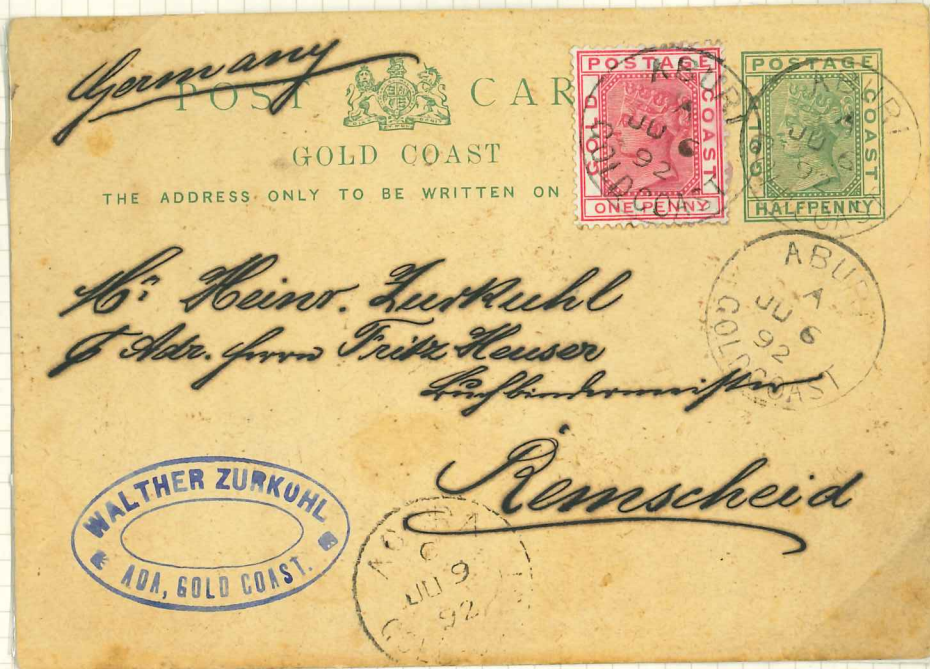 Germany
POST CAR
GOLD COAST
THE ADDRESS ONLY TO BE WRITTEN ON
POSTAGE
GOLD COAST
ONE PENNY
POSTAGE
GOLD COAST
HALFPENNY
ABURI
A
JU 6
92
GOLD COAST
ABURI
A
JU 6
92
GOLD COAST
ABURI
A
JU 6
92
GOLD COAST
Hr. Heinr. Zurkuhl
p Adr. Herrn Fritz Heuser
Buchbindermeister
Remscheid
WALTHER ZURKUHL
ADA, GOLD COAST.
ACCRA
C
JU 9
92